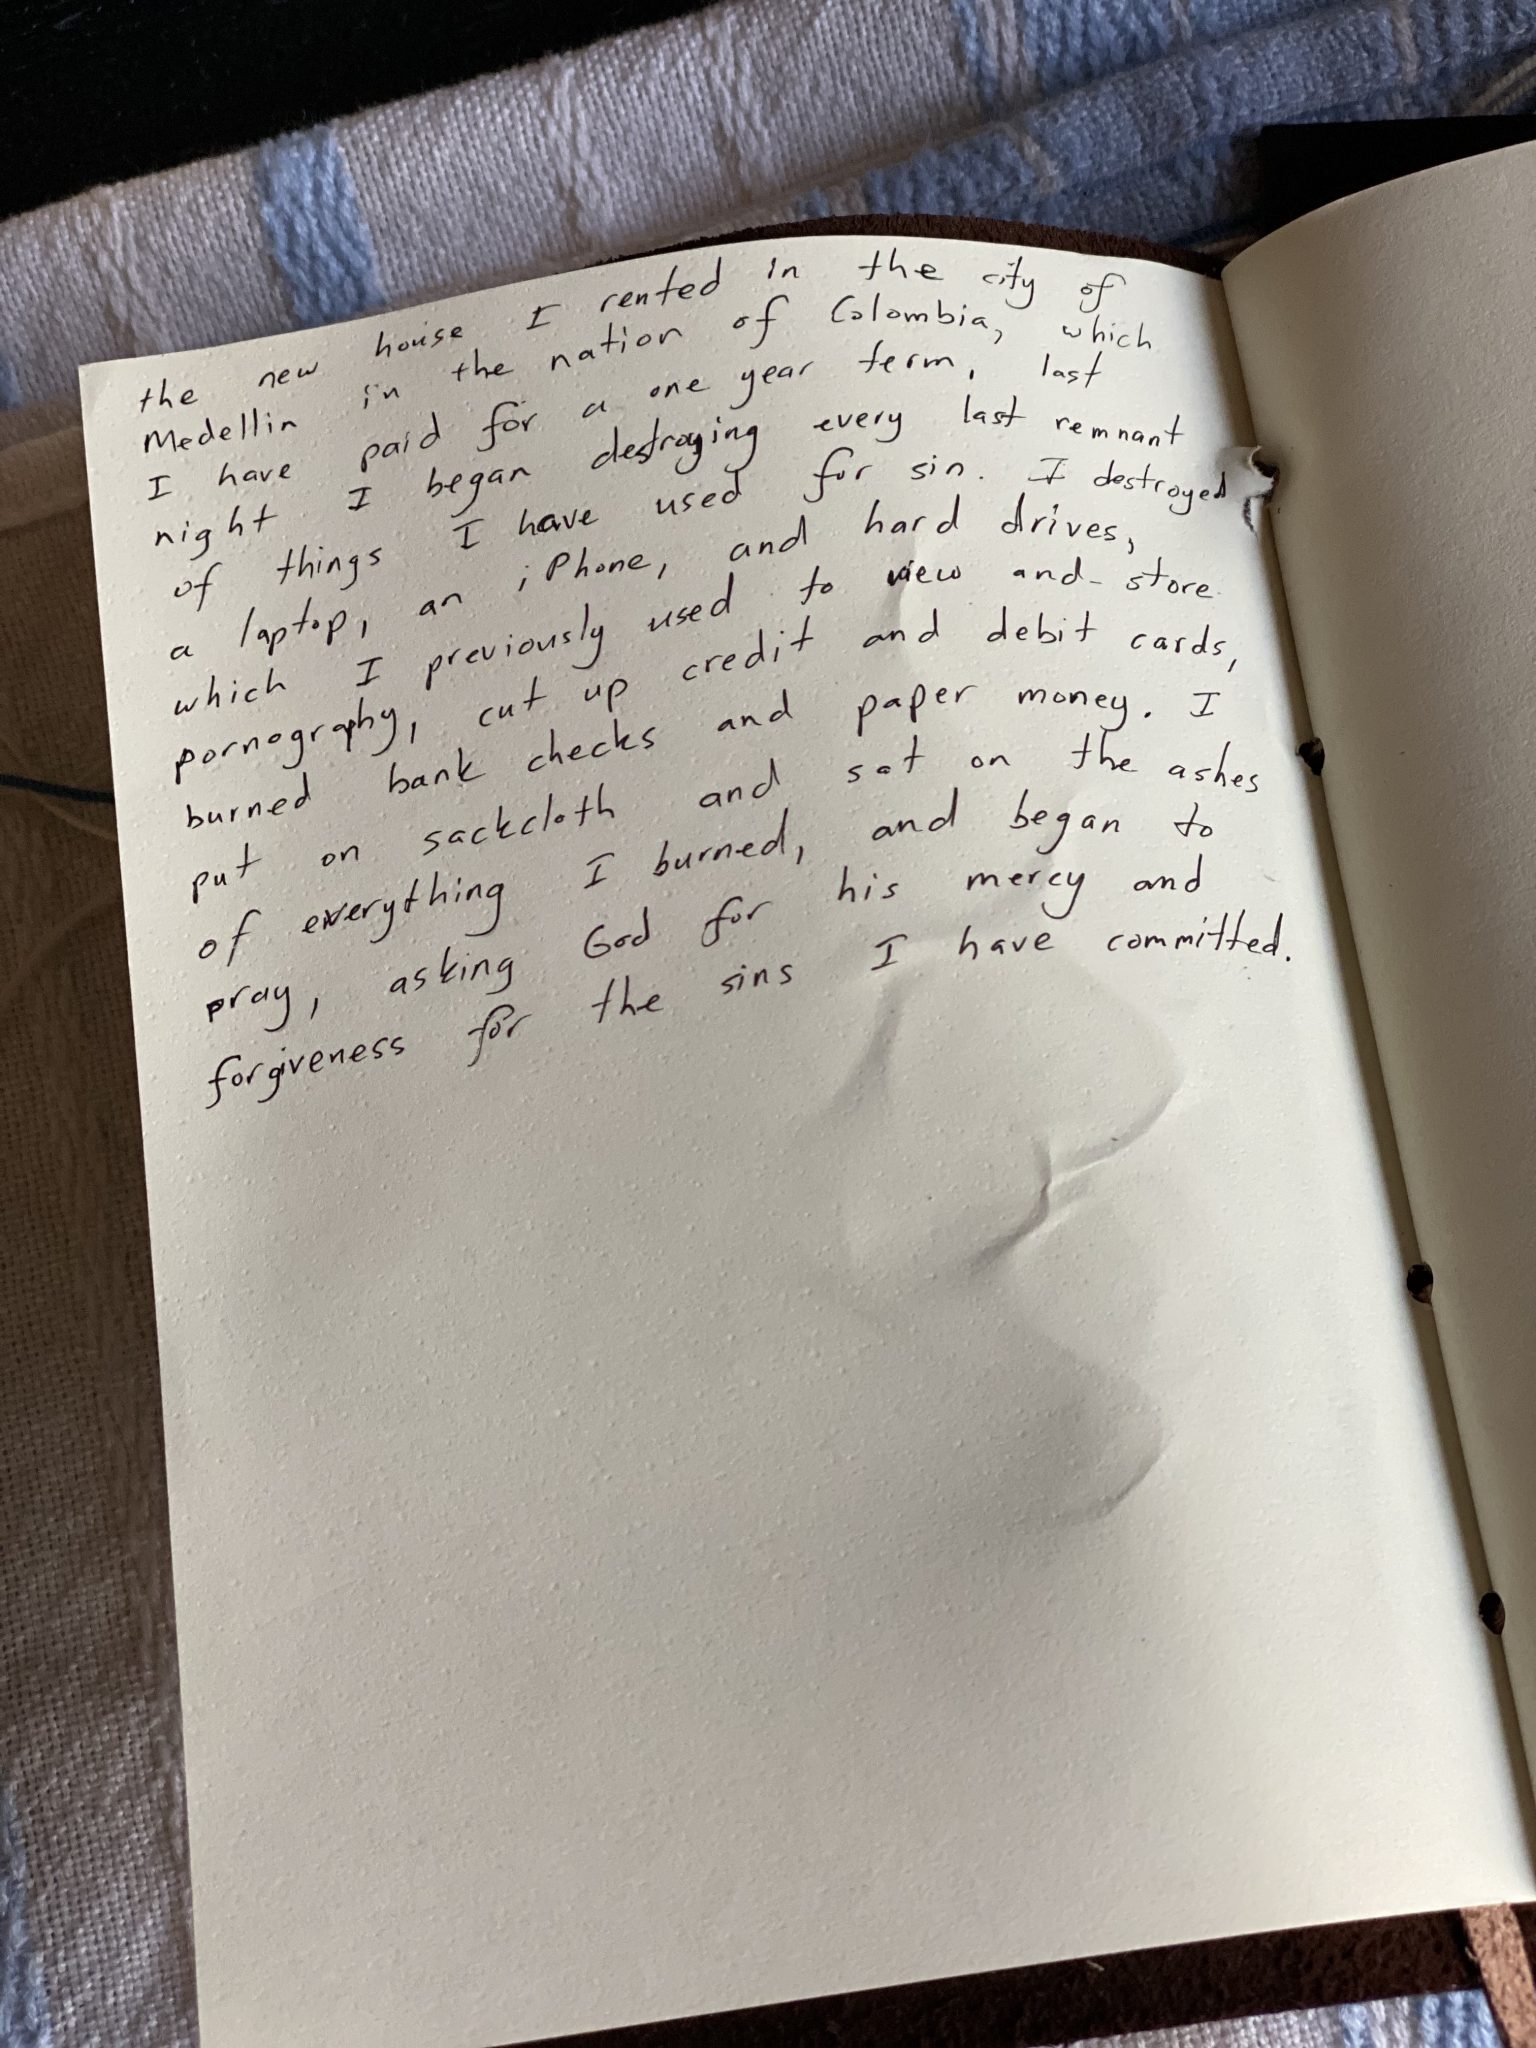 the new house I rented in the city of
Medellin in the nation of Colombia, which
I have paid for a one year term, last
night I began destroying every last remnant
of things I have used for sin. I destroyed
a laptop, an iPhone, and hard drives,
which I previously used to view and store
pornography, cut up credit and debit cards,
burned bank checks and paper money. I
put on sackcloth and sat on the ashes
of everything I burned, and began to
pray, asking God for his mercy and
forgiveness for the sins I have committed.